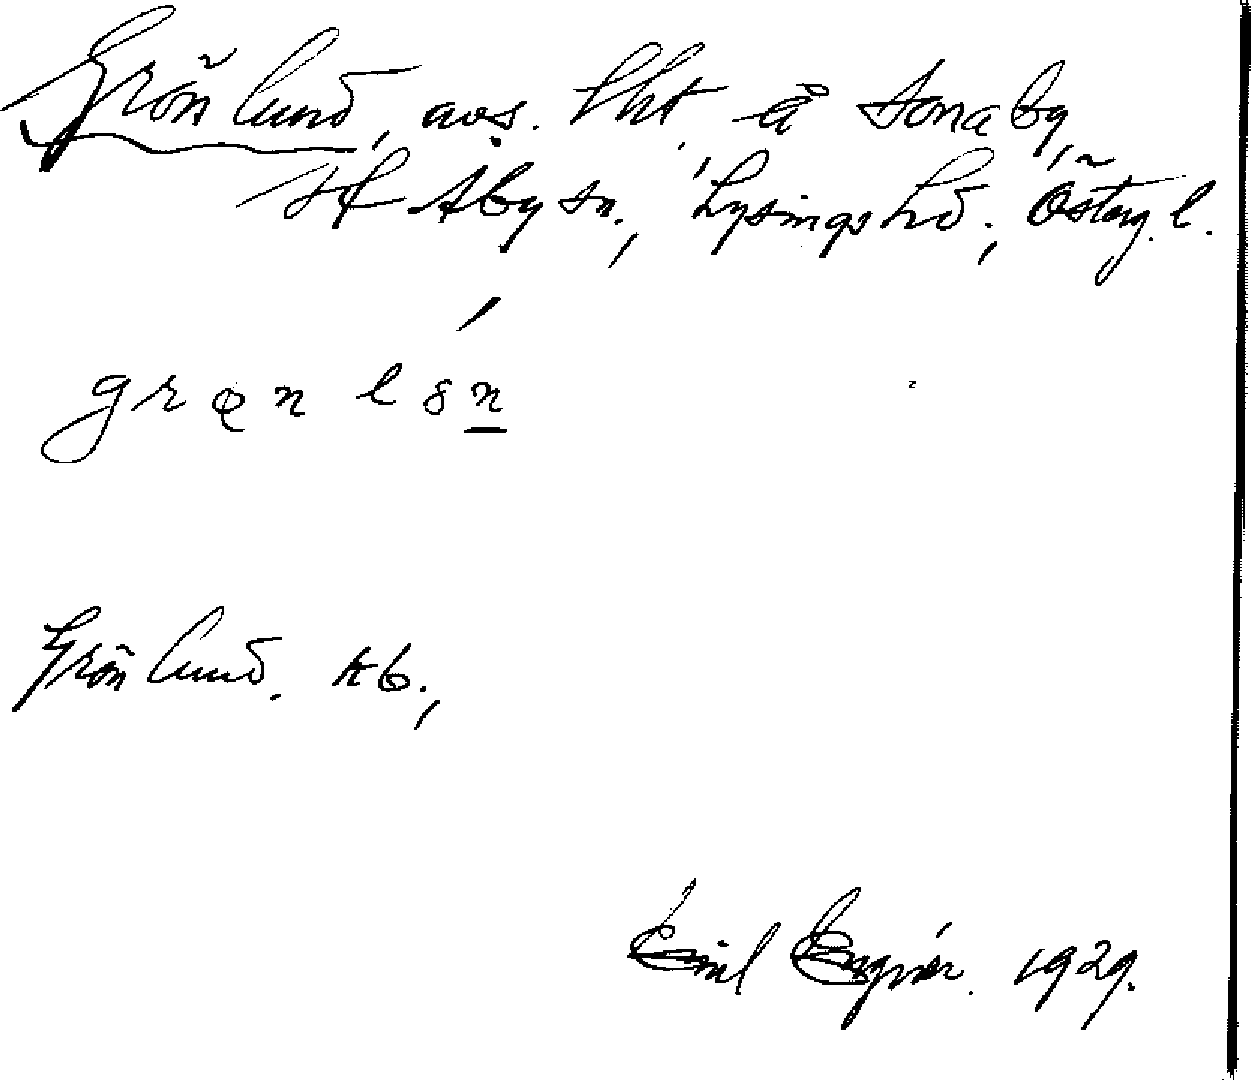 Grönlund, avs. lht. å Sonaby,
St Åby sn., Lysings hd., Österg. l.
grøn lsn
Grönlund. kb.,
Emil Engnér. 1929.